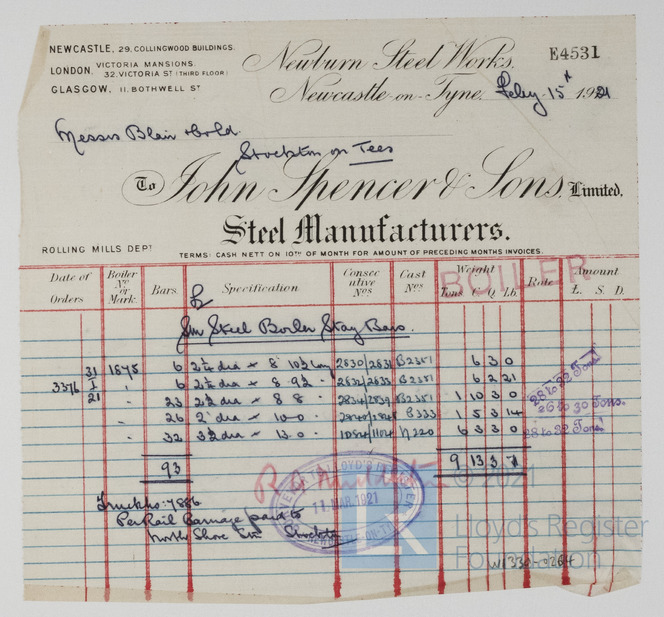 NEWCASTLE, 29, COLLINGWOOD BUILDINGS.
LONDON, VICTORIA MANSIONS.
32, VICTORIA ST (THIRD FLOOR)
GLASGOW, 11, BOTHWELL ST
Newburn Steel Works.
E4531
Newcastle-on-Tyne, Feby 15th 1921
Messrs Blair & Co Ld.
Stockton on Tees
To John Spencer & Sons, Limited,
Steel Manufacturers.
ROLLING MILLS DEPT
TERMS: CASH NETT ON 10TH OF MONTH FOR AMOUNT OF PRECEDING MONTHS INVOICES.
Date of Orders Boiler No or Mark. Bars. Specification Consecutive Nos Cast Nos Weight Tons C. Q. Lb. Rate Amount £. S. D.
BOILER
Sm Steel Boiler Stay Bars.
31 1675 6 dia × 8 2830/2831 B2351 6 3 0
3376 1 " 6 dia × 8 B2351 6 2 21
21 " 23 dia × 8 8 B2351 1 10 3 0
" 26 2" dia × 10 0 1 5 3 14
" 32 dia × 13 0 6 3 3 0
28 to 32 Tons
26 to 30 Tons.
28 to 32 Tons
93
9 13 3 7
Truck No: 7886
Per Rail Carriage paid to
North Shore Stockton
11 MAR. 1921
© 2021
Lloyd's Register
Foundation
W1330-0264